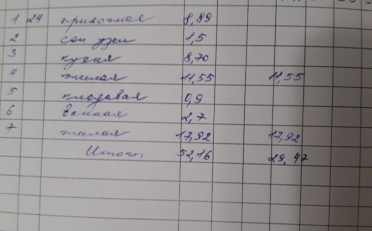 1 24 прихожная 8,89
2 сан узел 1,5
3 кухня 8,70
4 жилая 11,55 11,55
5 кладовая 0,9
6 ванная 2,7
7 жилая 17,92 17,92
Итого 52,16 29,47